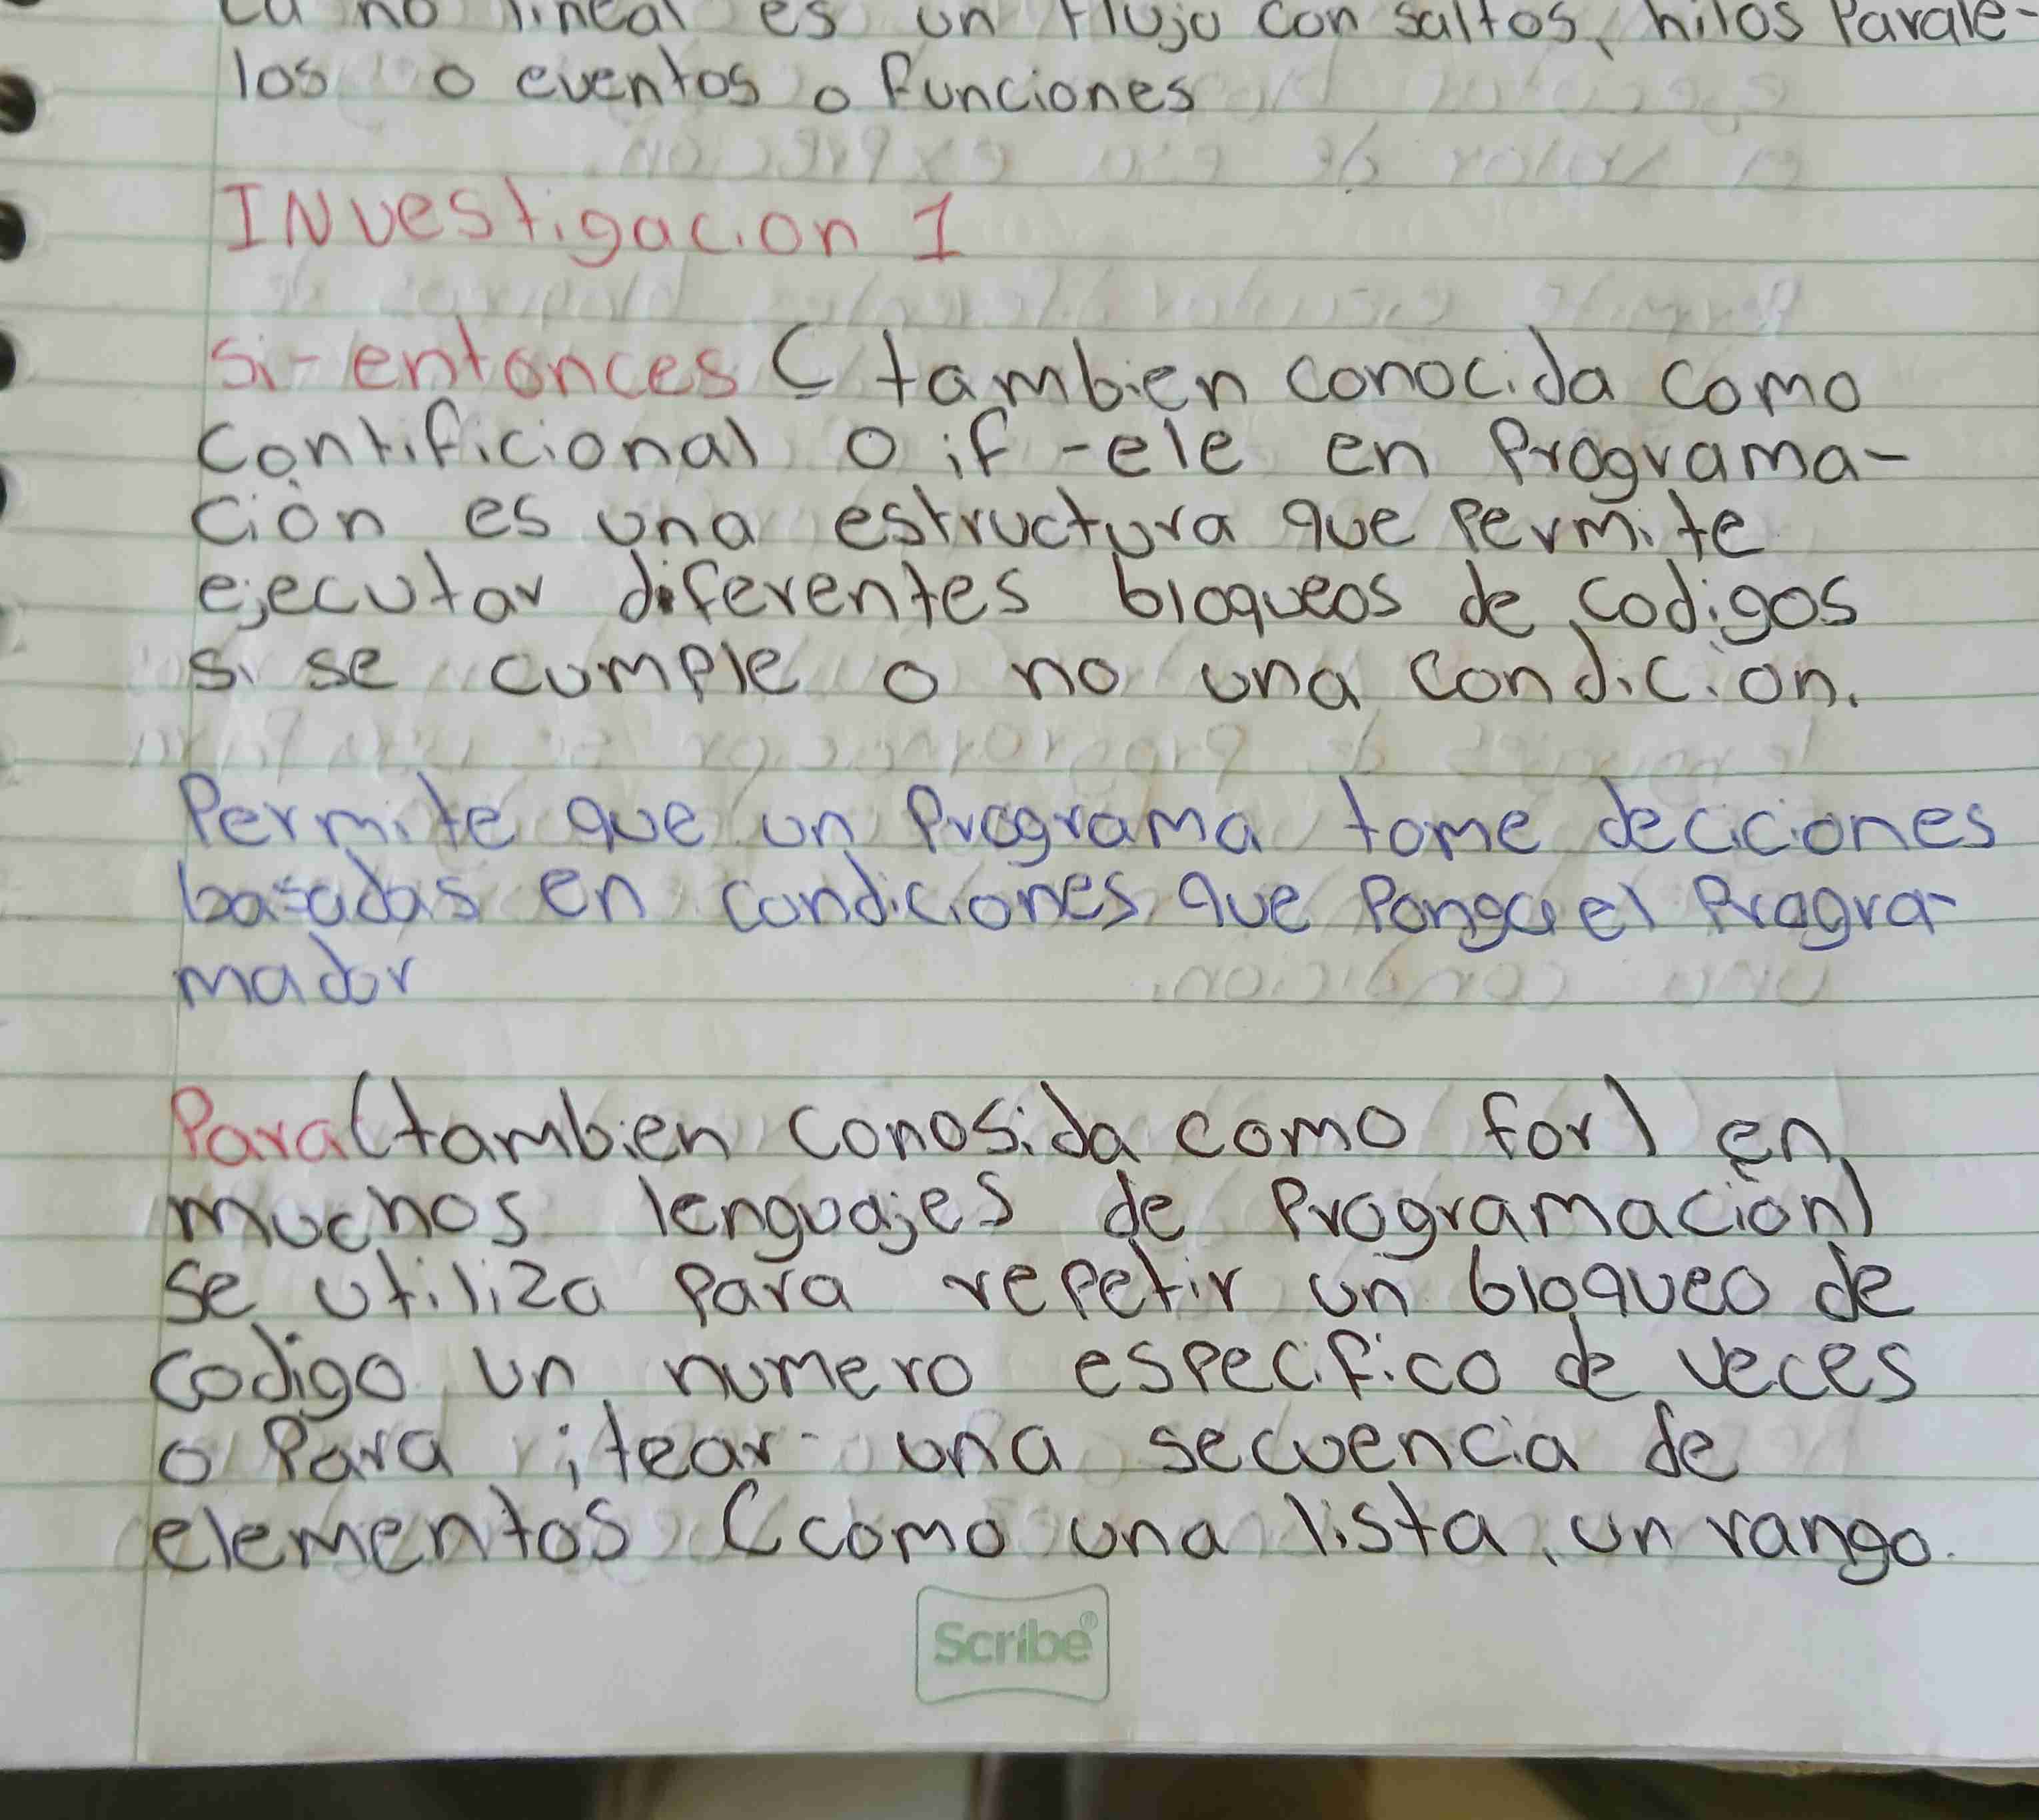 ca no lineal es un flujo con saltos, hilos Parale-
los o eventos o funciones
INvestigacion 1
Si-entonces ( tambien conocida como
Contificional o if -ele en Programa-
ción es una estructura que Permite
ejecutar diferentes bloqueos de codigos
si se cumple o no una condicion.
Permite que un Programa tome deciciones
basadas en condiciones que Ponga el Progra-
mador
Para (tambien conosida como for) en
muchos lenguajes de Programación)
se utiliza Para repetir un bloqueo de
codigo un numero especifico de veces
o Para itear una secuencia de
elementos (como una lista, un rango.
Scribe®